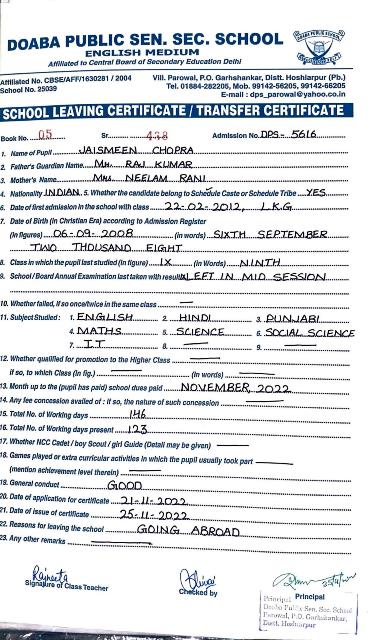 DOABA PUBLIC SEN. SEC. SCHOOL
ENGLISH MEDIUM
Affiliated to Central Board of Secondary Education Delhi
Affiliated No. CBSE/AFF/1630281 / 2004
School No. 25039
Vill. Parowal, P.O. Garhshankar, Distt. Hoshiarpur (Pb.)
Tel. 01884-282205, Mob. 99142-56205, 99142-66205
E-mail : dps_parowal@yahoo.co.in
SCHOOL LEAVING CERTIFICATE / TRANSFER CERTIFICATE
Book No. 05 Sr. 438 Admission No. DPS- 5616
1. Name of Pupil JAISMEEN CHOPRA
2. Father's Guardian Name MR. RAJ KUMAR
3. Mother's Name MRS. NEELAM RANI
4. Nationality INDIAN 5. Whether the candidate belong to Schedule Caste or Schedule Tribe YES
6. Date of first admission in the school with class 22-02-2012, L.K.G
7. Date of Birth (in Christian Era) according to Admission Register
(In figures) 06-09-2008 (in words) SIXTH SEPTEMBER
TWO THOUSAND EIGHT
8. Class in which the pupil last studied (in figure) IX (in Words) NINTH
9. School / Board Annual Examination last taken with result LEFT IN MID SESSION
10. Whether failed, if so once/twice in the same class —
11. Subject Studied : 1. ENGLISH 2. HINDI 3. PUNJABI
4. MATHS 5. SCIENCE 6. SOCIAL SCIENCE
7. I.T 8. — 9. —
12. Whether qualified for promotion to the Higher Class —
if so, to which Class (in fig.) — (in words) —
13. Month up to the (pupil has paid) school dues paid NOVEMBER, 2022
14. Any fee concession availed of : if so, the nature of such concession —
15. Total No. of Working days 146
16. Total No. of Working days present 123
17. Whether NCC Cadet / boy Scout / girl Guide (Detail may be given) —
18. Games played or extra curricular activities in which the pupil usually took part —
(mention achievement level therein) —
19. General conduct GOOD
20. Date of application for certificate 21-11-2022
21. Date of issue of certificate 25-11-2022
22. Reasons for leaving the school GOING ABROAD
23. Any other remarks —
Rajneeta
Signature of Class Teacher
Checked by
Principal
Principal
Doaba Public Sen. Sec. School
Parowal, P.O. Garhshankar,
Distt. Hoshiarpur